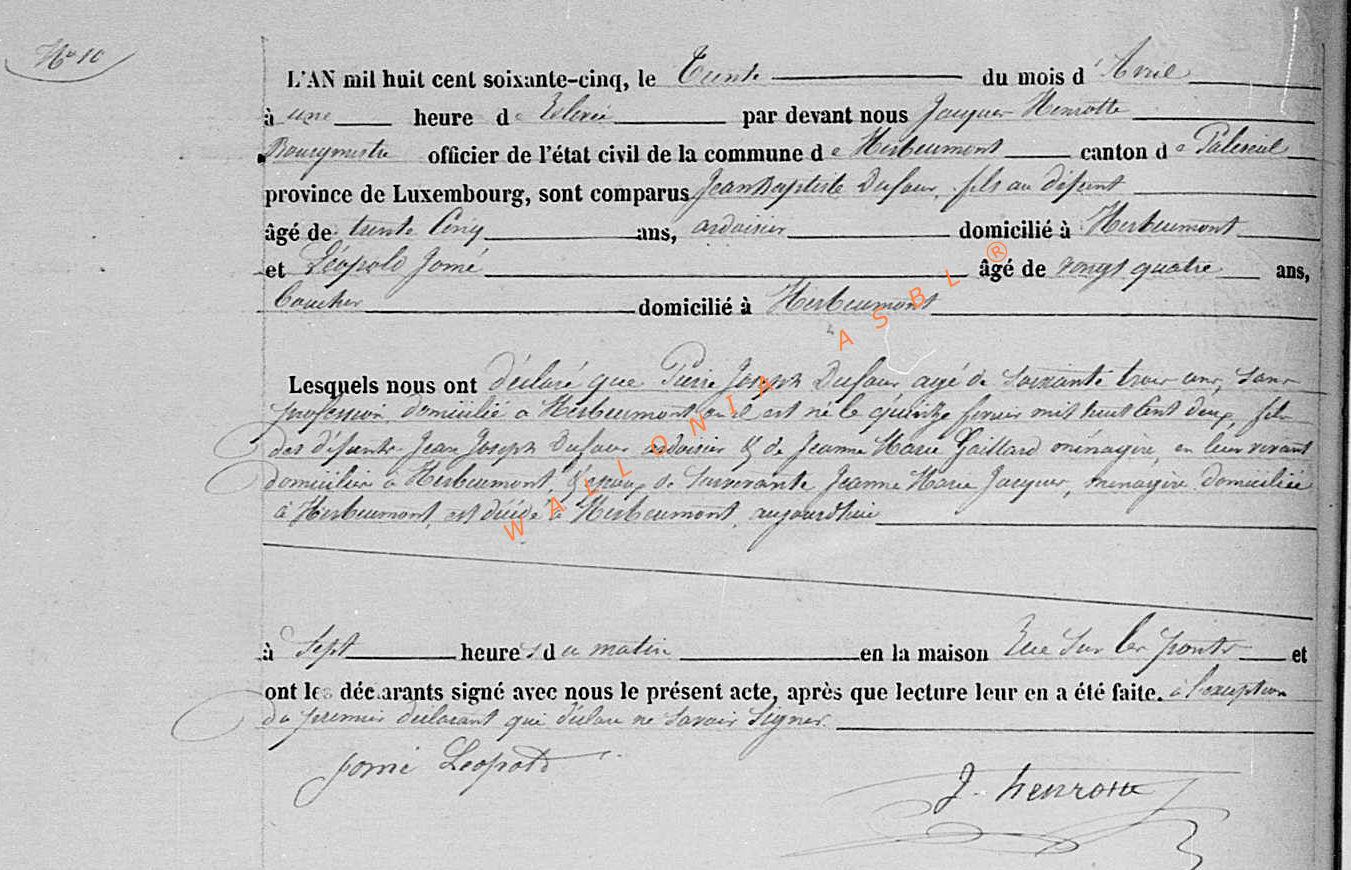 No 10
L'AN mil huit cent soixante-cinq, le Trente du mois d'Avril
à une heure de Relevée par devant nous Jacques Henrotte
Bourgmestre officier de l'état civil de la commune de Herbeumont canton de Paliseul
province de Luxembourg, sont comparus Jean Baptiste Dufour, fils au défunt
âgé de trente Cinq ans, ardoisier domicilié à Herbeumont
et Léopold Jomé âgé de vingt quatre ans,
domicilié à Herbeumont
Lesquels nous ont déclaré que Pierre Joseph Dufour agé de soixante trois ans, sans
profession, domicilié à Herbeumont où il est né le quinze fevrier mil huit Cent deux, fils
des défunts Jean Joseph Dufour ardoisier & de Jeanne Marie Gaillard ménagère, en leur vivant
domiciliés à Herbeumont, & époux de survivante Jeanne Marie Jacques, ménagère domiciliée
à Herbeumont, est décédé à Herbeumont, aujourd'hui
à Sept heures du matin en la maison Rue Sur les ponts et
ont les déclarants signé avec nous le présent acte, après que lecture leur en a été faite. à l'exception
du premier déclarant qui déclare ne savoir signer.
Jomé Leopold
J. henrotte
WALLONIA ASBL ®